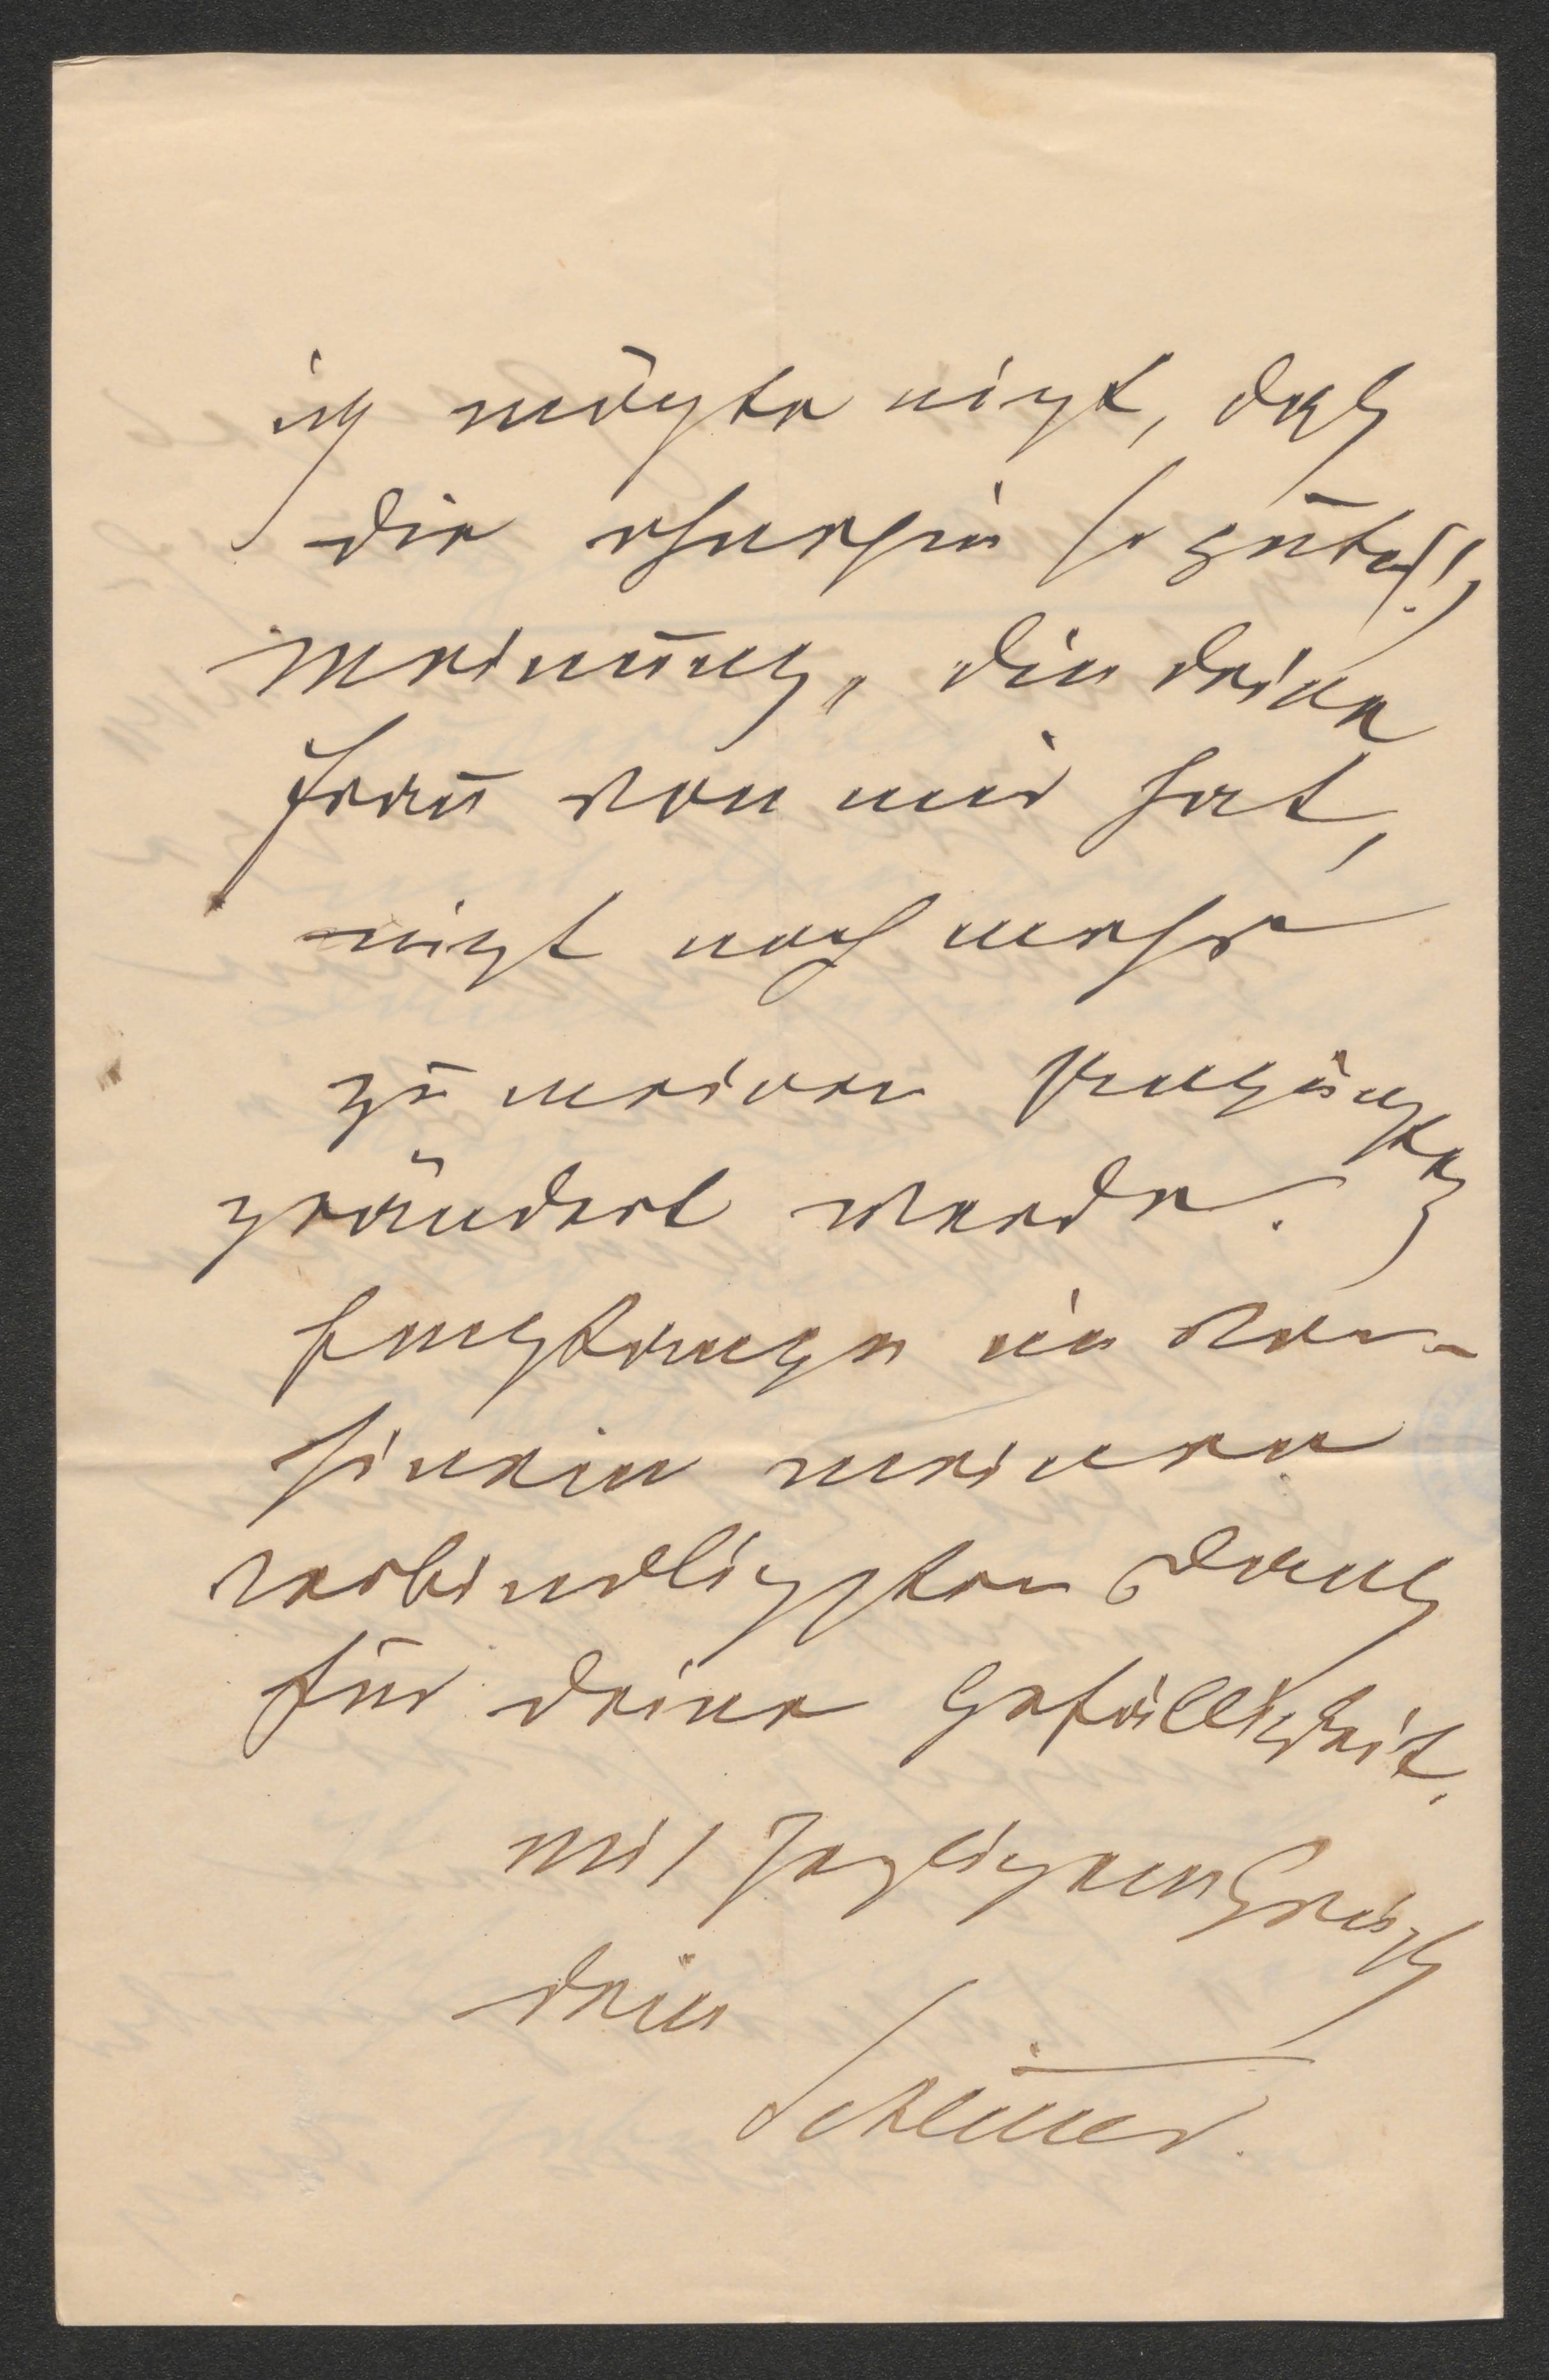 ich möchte nicht, daß
die ohnehin so gute(!)
Meinung, die deine
Frau von mir hat,
nicht noch mehr
zu meinen Ungunsten
geändert werde.
Empfange im vor-
hinein meinen
verbindlichsten Dank
für deine Gefälligkeit.
Mit herzlichem Gruß
dein